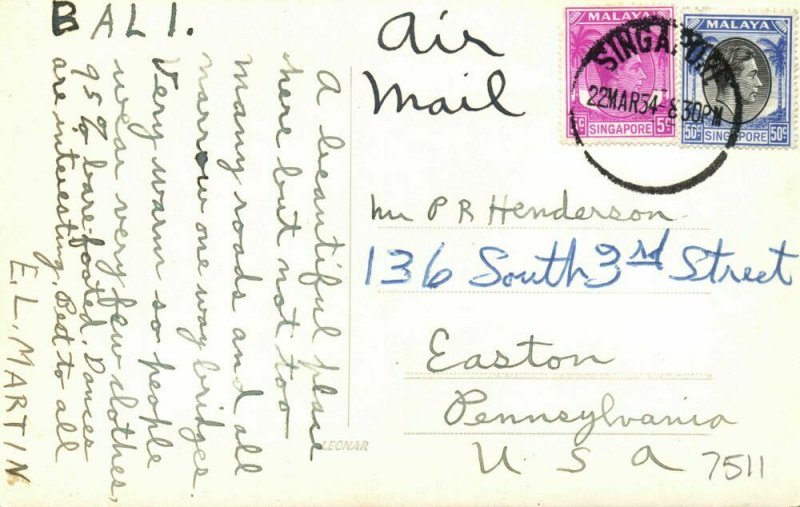 BALI.
A beautiful place
here but not too
many roads and all
narrow one way bridges.
Very warm so people
wear very few clothes,
95% bare-footed. Dances
are interesting, Best to all
E.L. MARTIN
Air
Mail
MALAYA
SINGAPORE
5c
MALAYA
SINGAPORE
50c 50c
SINGAPORE
22MAR54-830PM
Mr P R Henderson
136 South 3rd Street
Easton
Pennsylvania
U S A
7511
LEONAR